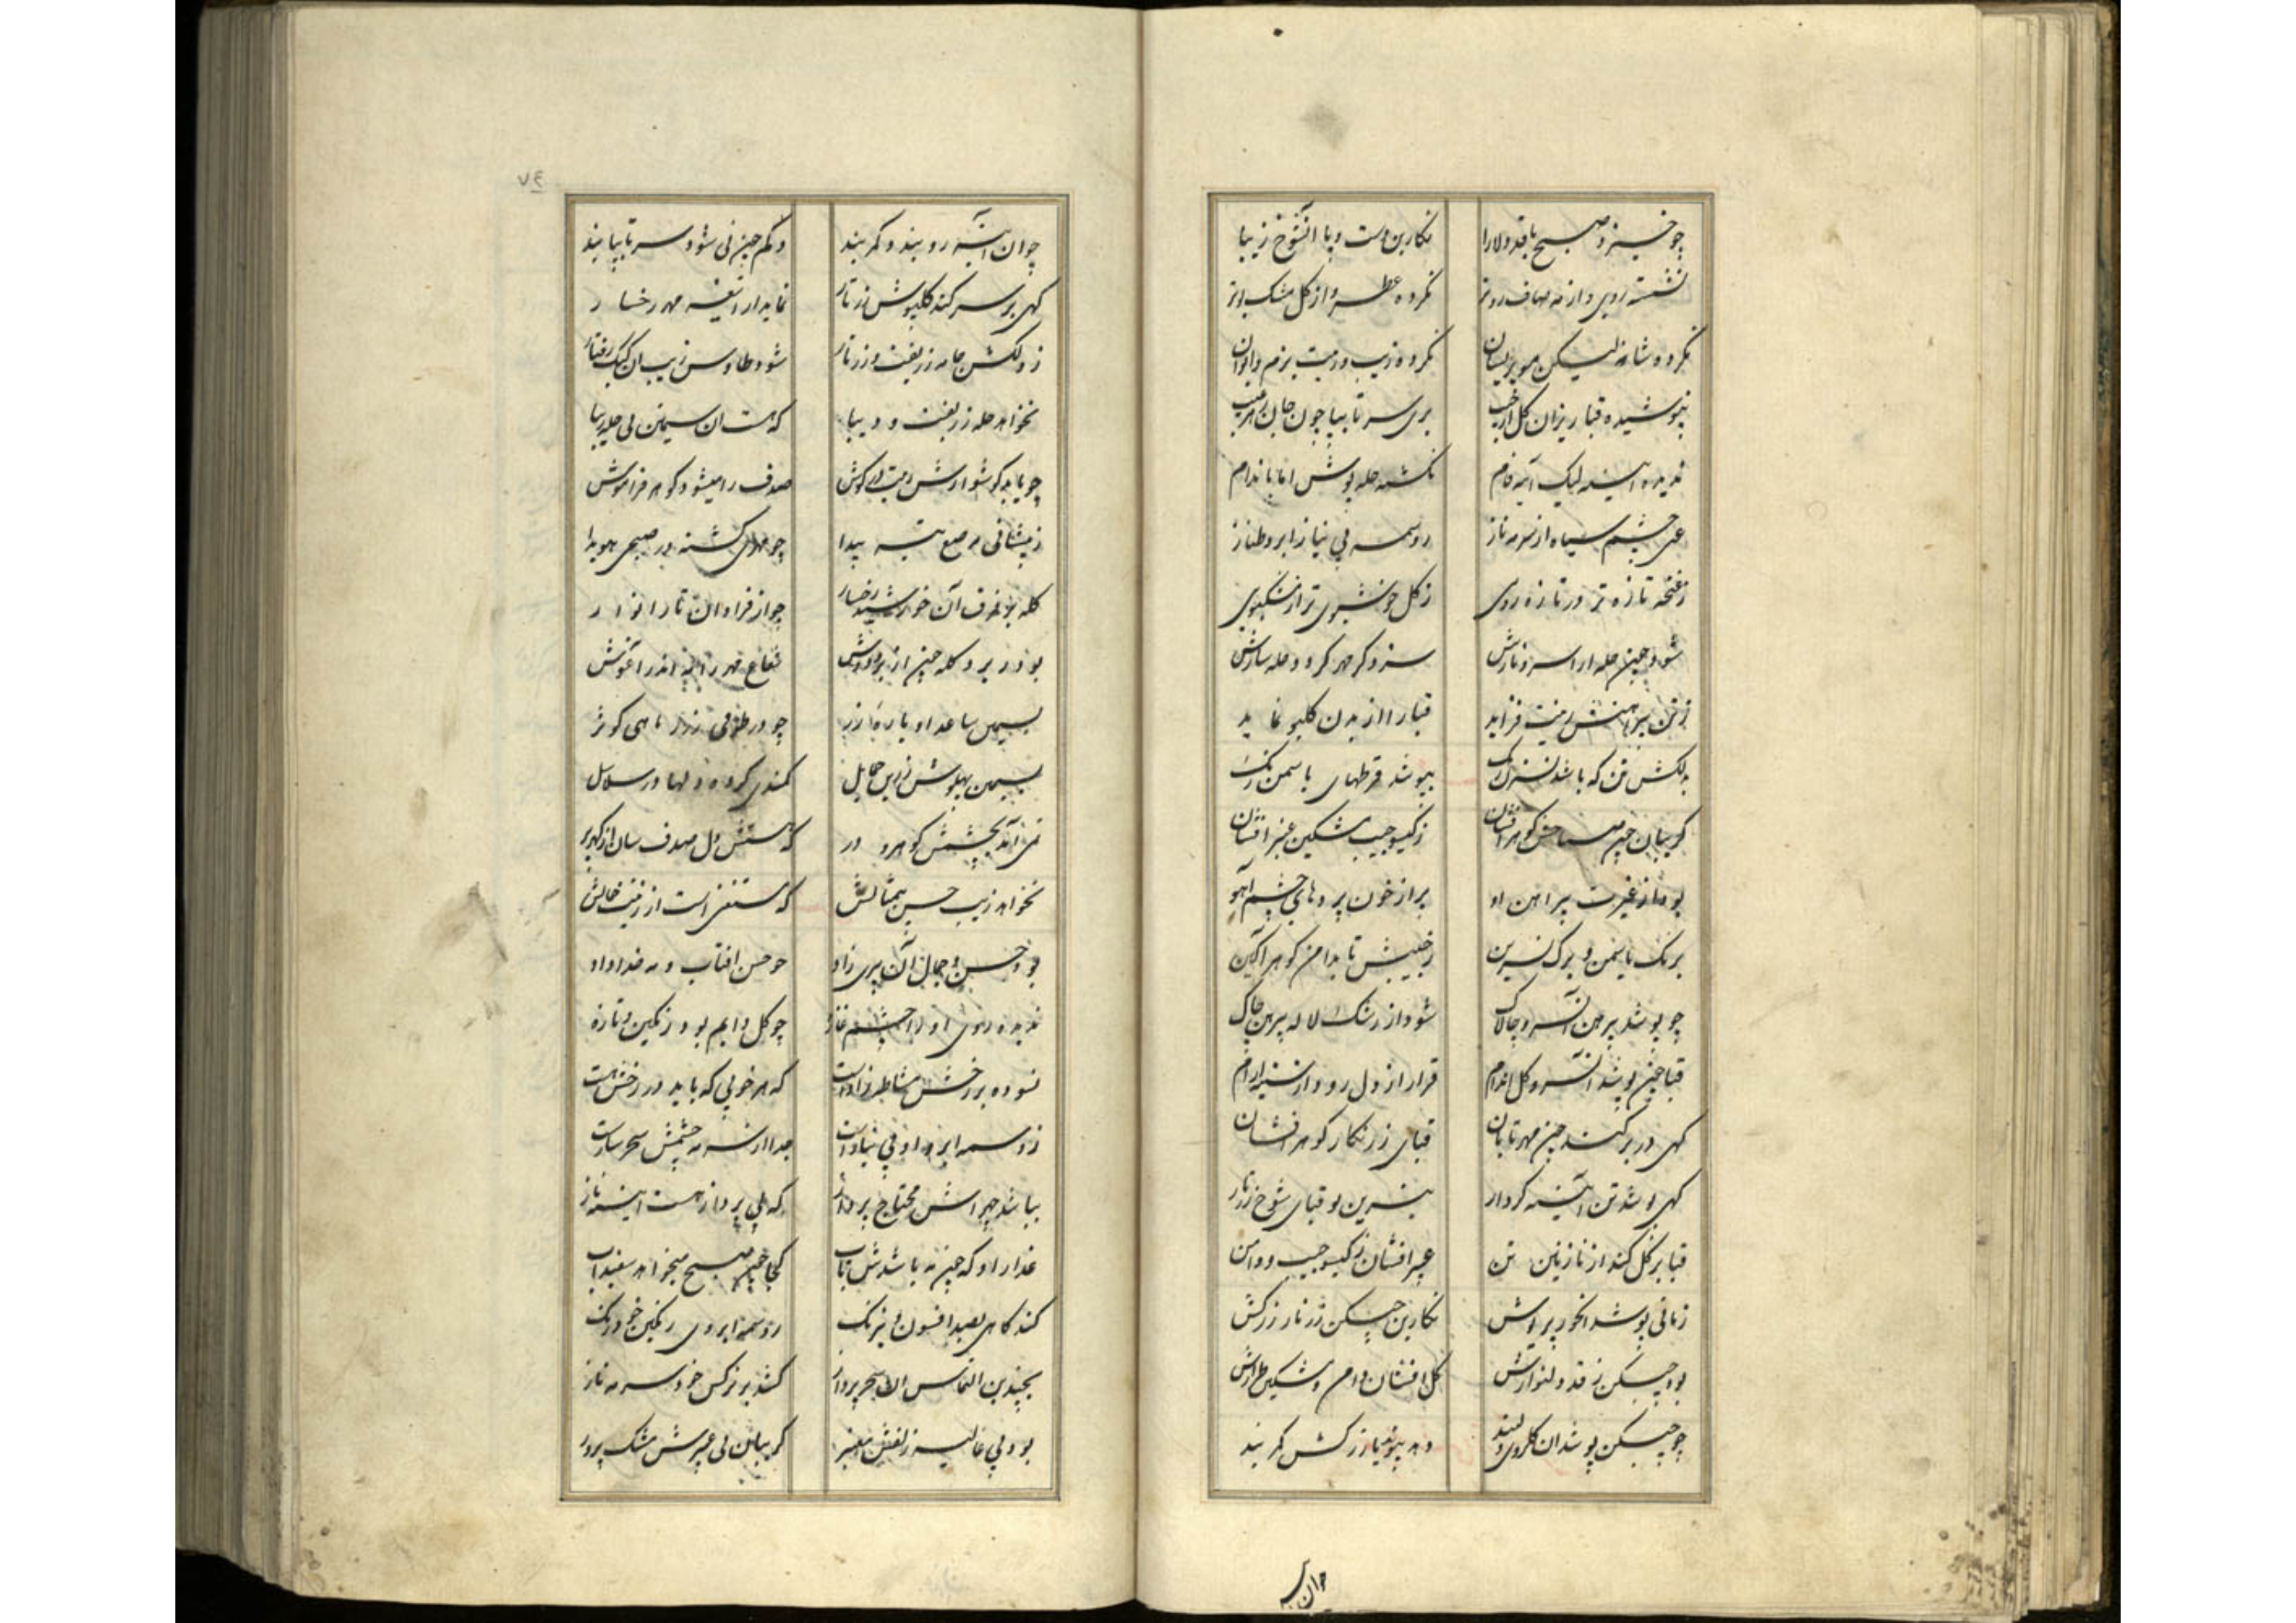 چو خیزد صبح با قد دلارا نکارین دست و پا آنشوخ زیبا
نشسته روی و از مه صاف روتر نکرده عطر و از کل مشک بوتر
نکرده شانه لیکن مو پریشان نکرده زیب و زینت بزم و ایوان
نپوشیده قبا ریزان کل از جیب بری سر تا بپا چون جان ز هر عیب
ندیده آینه لیک آینه فام نکشته حله پوش اما باندام
غنی چشم سیاه از سرمه ناز ز وسمه بی نیاز ابرو طناز
ز غنچه تازه تر در تازه روی ز کل خوشبوی تر از مشکبوی
شود چون حله آرا سرو نازش سزد کر مهر کردد حله سازش
ز تن پیراهنش زینت فزاید قبا را از بدن کلبو نماید
به لکش تن که باشد نسترن رنک بپوشد قرطهای یاسمن رنک
کریبان چون صباحش کوهر افشان ز کیسو جیب مشکین عنبر افشان
بود از غیرت پیراهن او پر از خون پردهای چشم آهو
برنک یاسمن و برک نسرین ز جیبش تا بدامن کوهر آکین
چو پوشد پیرهن آن سرو چالاک شود از رشک لاله پیرهن چاک
قبا چون پوشد آن سرو کل اندام قرار از دل رود از سینه آرام
کهی در بر کند چون مهر تابان قبای زرنکار کوهر افشان
کهی پوشد تن آیینه کردار بنسرین بو قبای شوخ زرتار
قبا بر کل کند از نازنین تن عبیر افشان ز کیسو جیب و دامن
زمانی پوشد آنحور پریوش نکارین چسکن زرتار زرکش
بود چسکن ز قد دلنوازش کل افشان دامن و مشکین طرازش
چو چسکن پوشد آن کلروی دلبند دهد پیوند با زرکش کمربند
چو ان آینه
٧٤
چو ان آینه رو بندد کمربند ونکم چون نی شود سر تا بپا بند
کهی بر سر کند کلپوش زرتار نماید از شفیه مهر رخسار
ز دلکش جامه زربفت و زرتار شود طاوس زیب ان کبک رفتار
نخواهد حله زربفت و دیبا که هست ان سیمتن بی حله زیبا
چو یابد کوشوارش زینت کوش صدف را میشود کوهر فراموش
ز پیشانی مرصع تیته پیدا چو ماهی کشته در صبحی هویدا
کله بر فرق آن خورشید رخسار چو از فراوان تار انوار
بود در بر د کله چون از بر دوشش شعاع مهر را بین اندر آغوش
بسیمین ساعد او یاره زر چو در طوقی ز زر ماهی کوثر
بسیمین پهلوش زرین حمایل کمندی کرده دلها در سلاسل
نمی آید بچشمش کوهر و در که هستش دل صدف سان از کهر پر
نخواهد زیب حسن بیمثالش که مستغنی است از زینت جمالش
بود حسن و جمال آن پری زاد چو حسن افتاب و مه خداداد
ندیده روی او را چشم غازه چو کل دایم بود رنکین و تازه
نسوده بر رخش مشاطه زان دست که هر خوبی که باید در رخش هست
ز وسمه ابروی او بی نیاز است جدا از سرمه چشمش سحرساز است
نباشد چهره اش محتاج پرداز که بی پرداز هست آیینه ناز
عذار او که چون مه باشدش تاب کجا چون صبح میخواهد سفیداب
کند کاهی بصد افسون و نیرنک ز وسمه ابروی رنکین خود رنک
بچندین التماس ان سحر پرداز کشد بر نرکس خود سرمه ناز
بود بی غالیه زلفش معنبر کریبان بی عبیرش مشک پرور